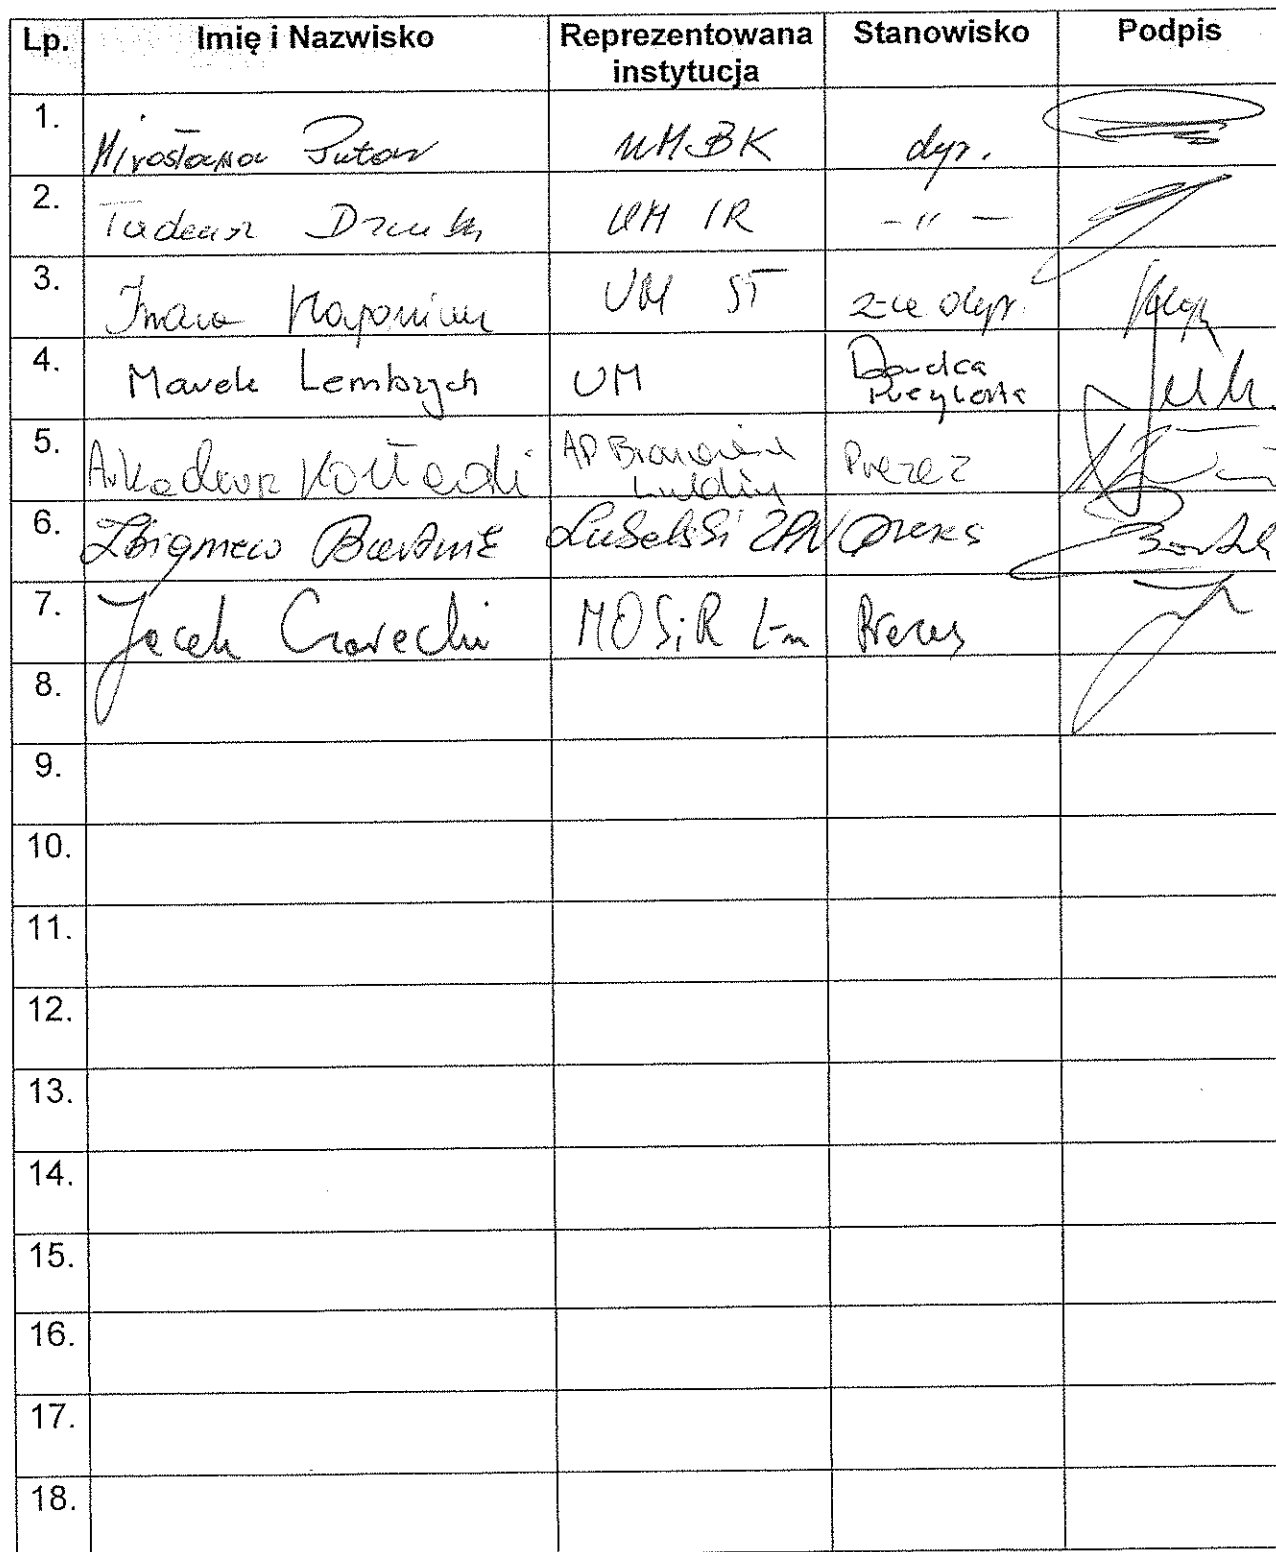 Lp. Imię i Nazwisko Reprezentowana instytucja Stanowisko Podpis
1. Mirosława Puton UM BK dyr.
2. Tadeusz UM IR - 〃 -
3. UM ST z-ca dyr.
4. Marek Lembrych UM Doradca Prezydenta
5. Arkadiusz AP Prezes
6. Zbigniew Bartnik Lubelski ZPN Prezes
7. Jacek Czarecki MOSiR L-n Prezes
8.
9.
10.
11.
12.
13.
14.
15.
16.
17.
18.